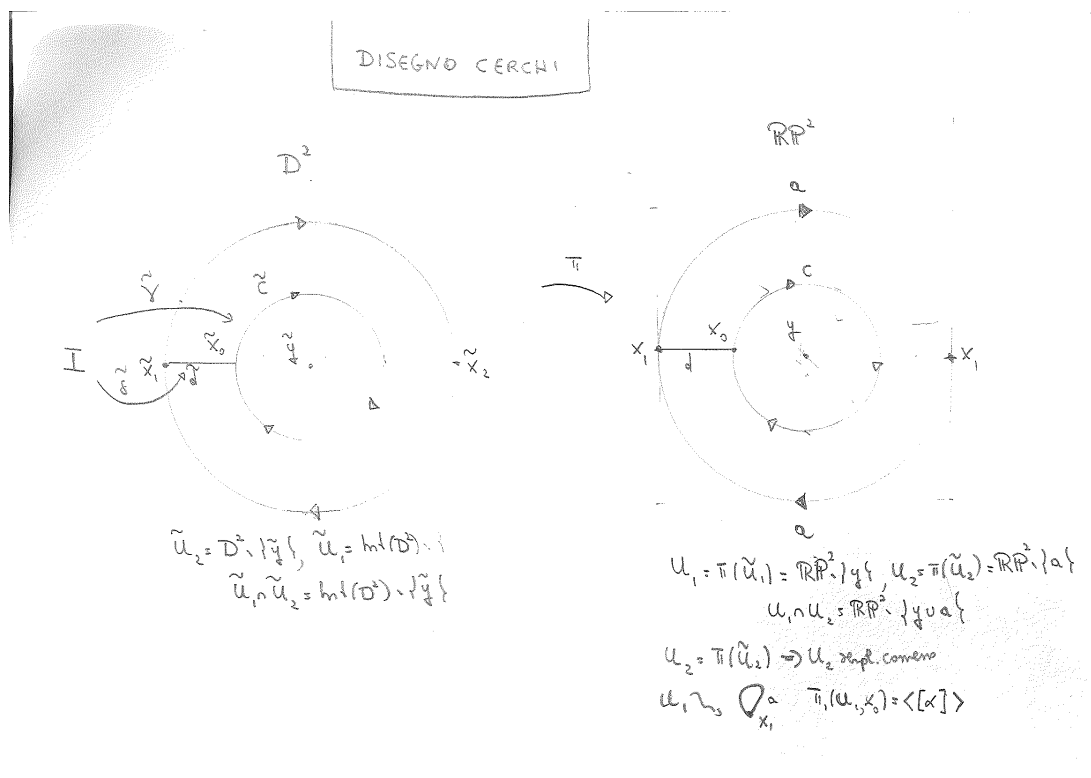 DISEGNO CERCHI
D²
γ̃
c̃
I
x̃₁
d̃
x̃₀
ỹ
x̃₂
Ũ₂ = D² \ {ỹ}, Ũ₁ = Int(D²) \ {
Ũ₁ ∩ Ũ₂ = Int(D²) \ {ỹ}
π
RP²
a
c
x₁
d
x₀
y
x₁
a
U₁ = π(Ũ₁) = RP² \ {y}, U₂ = π(Ũ₂) = RP² \ {a}
U₁ ∩ U₂ = RP² \ {y ∪ a}
U₂ = π(Ũ₂) ⇒ U₂ sempl. connesso
U₁ a x₁ π₁(U₁, x₀) = <[α]>